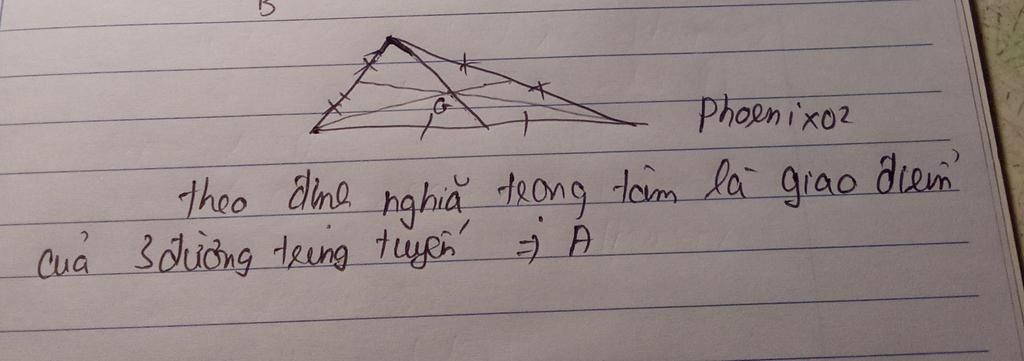 B
G
Phoenix02
theo định nghiã trọng tâm là giao điểm
cuả 3 đường trung tuyến => A